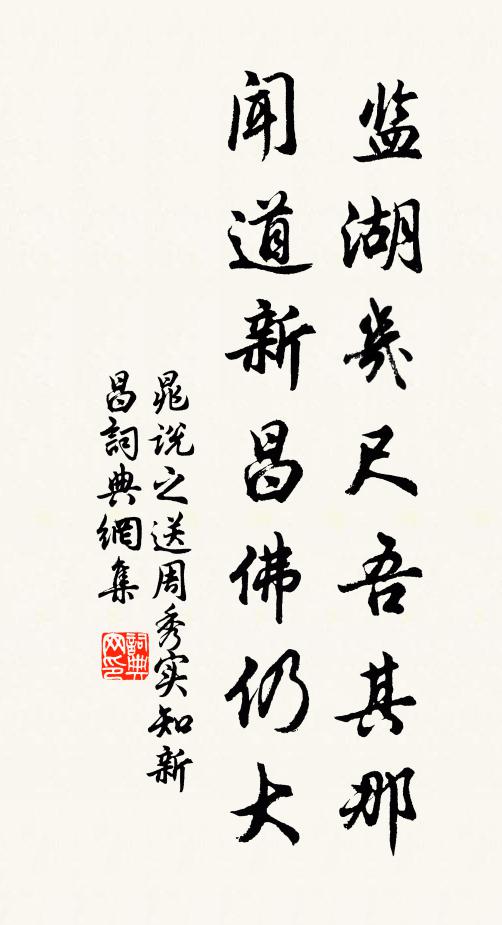 监湖几尺吾其那
闻道新昌佛仍大
晁说之送周秀实知新
昌詞典網集
詞典网印